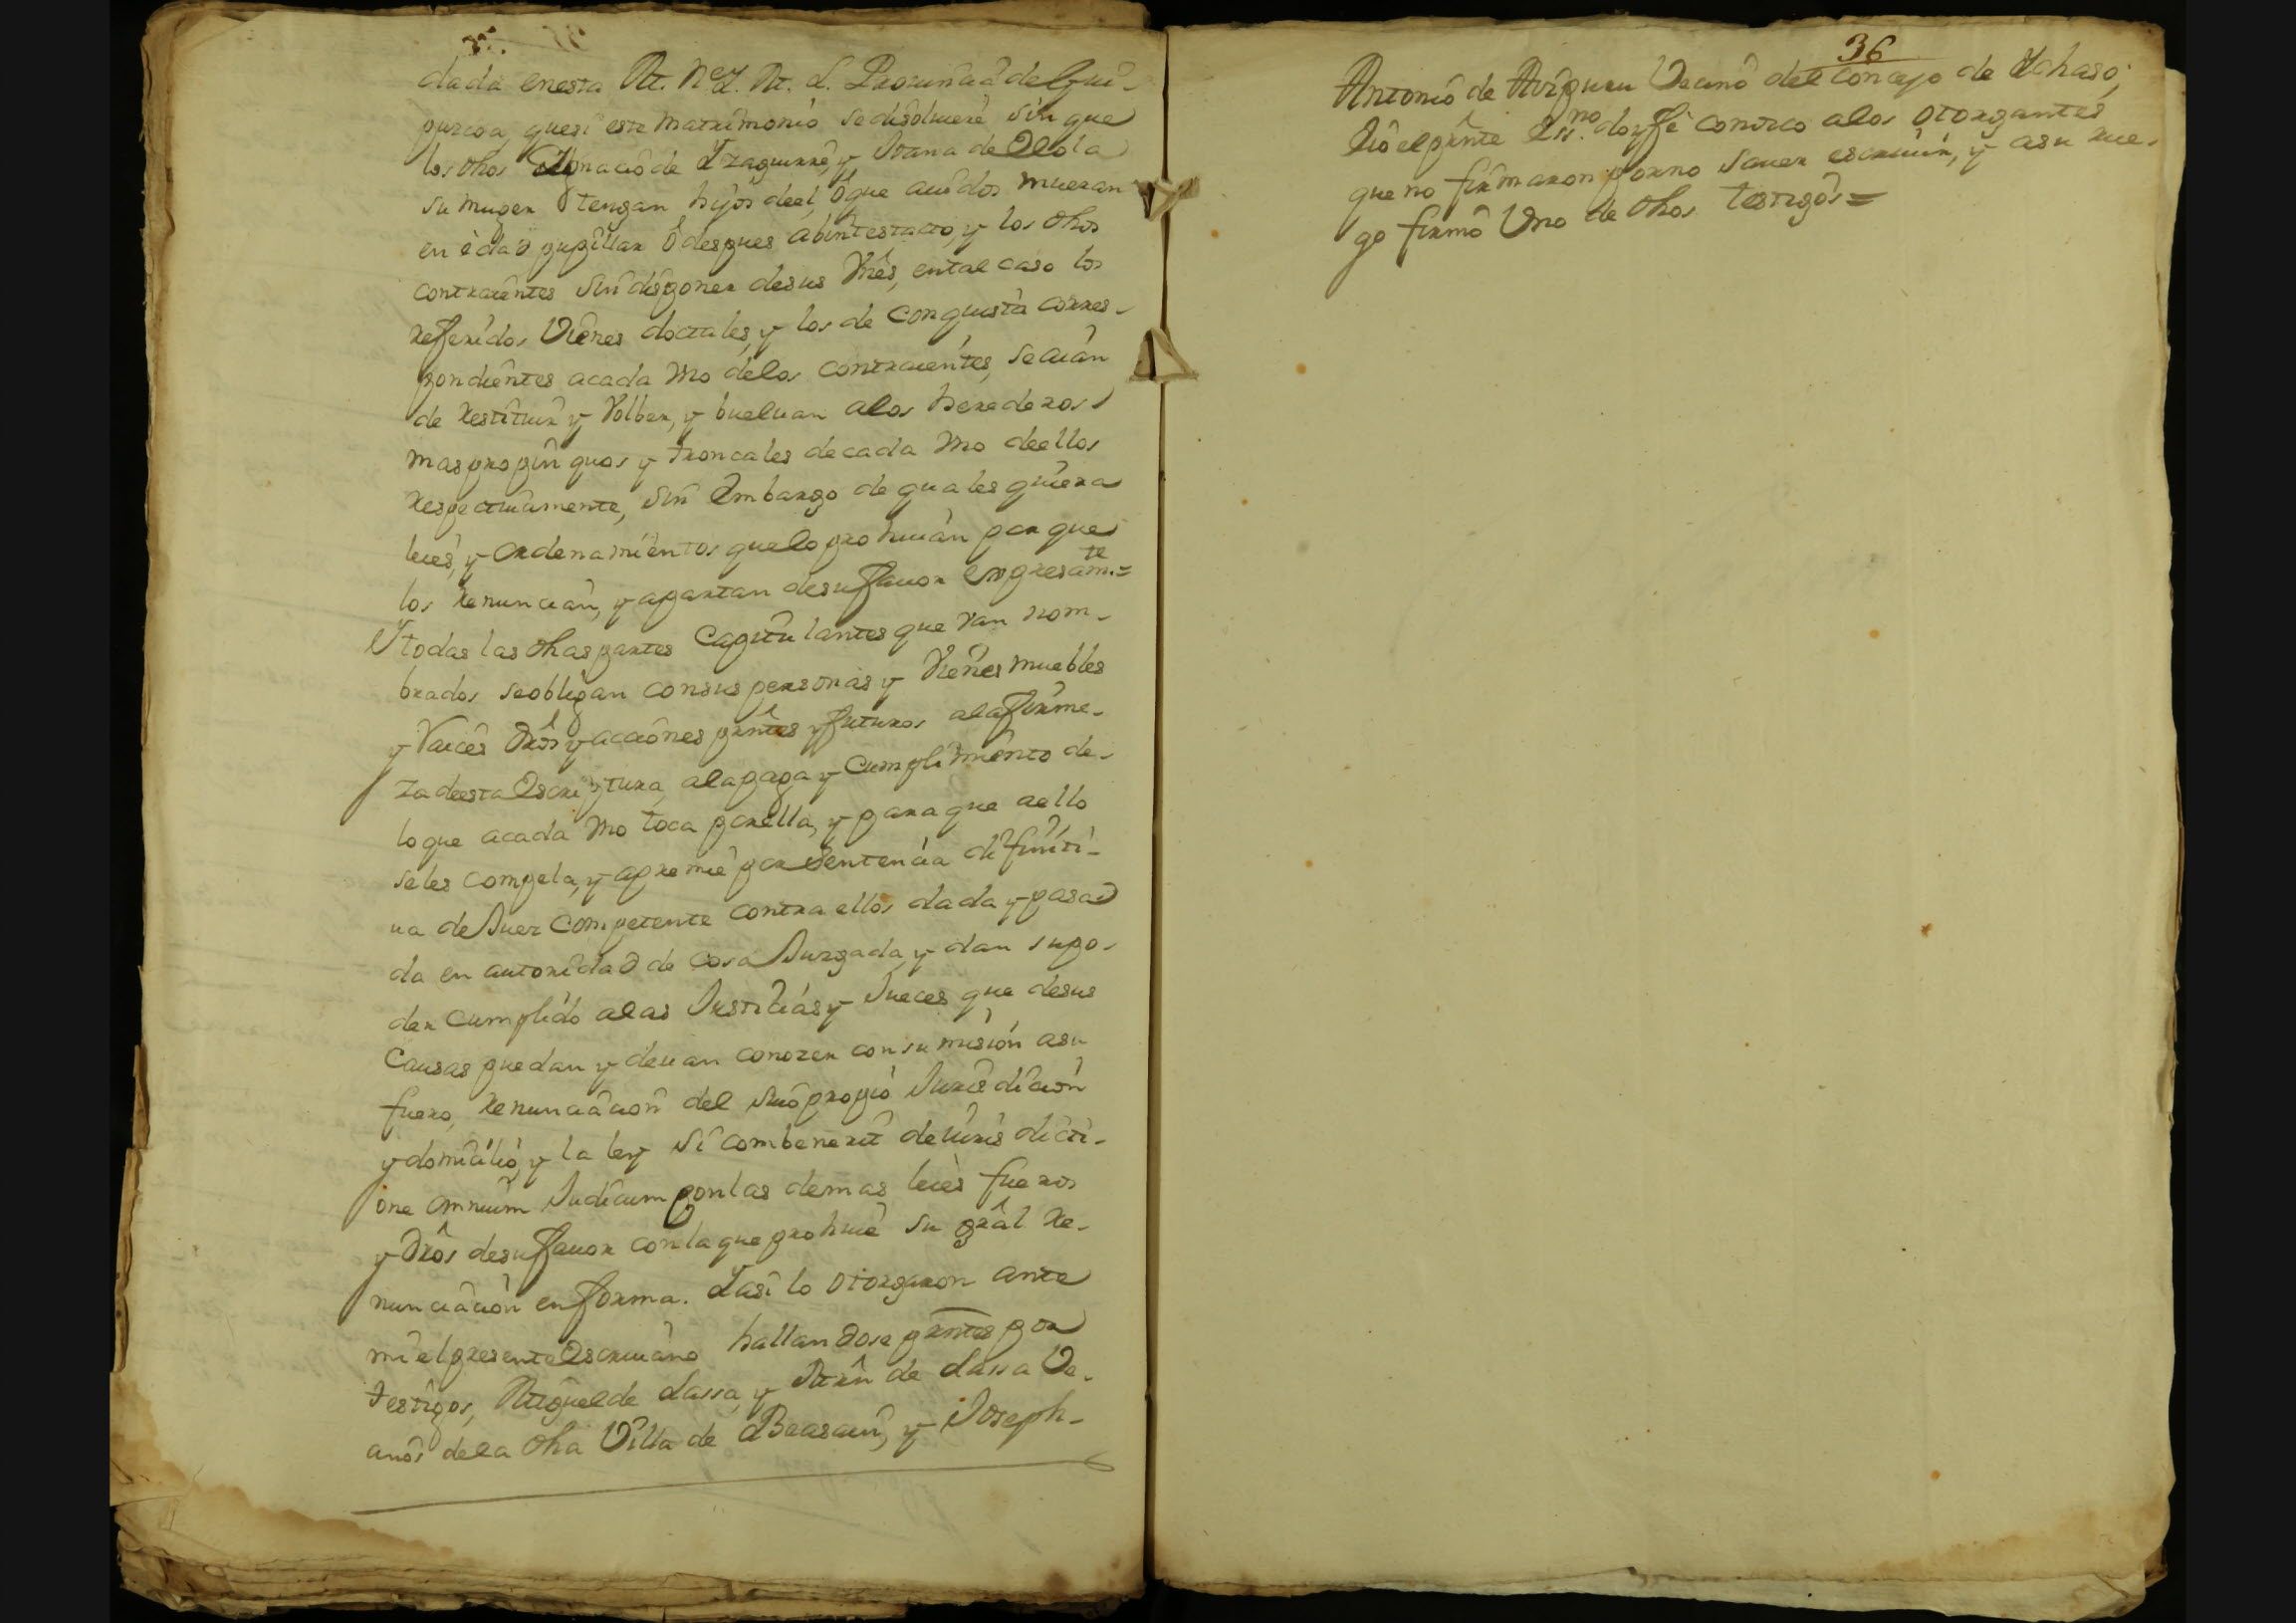 dada enesta M. N. y M. L. Prouinçia de Gui-
puzcoa, quesi este Matrimonio sedisoluiere sin que
los dhos Ygnacio de Yzaguirre, y Juana de Olola
su muger tengan hijos deel, ó que auidos mueran
en édad pupillar ó despues abintestacto, y los dhos
contraientes sin disponer desus Vnes, ental caso los
referidos Vienes doctales, y los de conquista corres-
pondientes acada vno delos contraientes, seaian
de restituir y Volber, y bueluan alos herederos
mas propinquos y troncales decada vno deellos
respectiuamente, sin Embargo de qualesquiera
leies, y ordenamientos quelo prohiuian por que
los renuncian, y apartan desufauor expresamte.=
Y todas las dhas partes Capitulantes que van nom-
brados seobligan consus personas y Vienes muebles
y Raices dros y acciones pntes y futuros alafirme-
za deesta Escriptura, alapaga y Cumplimiento de-
loque acada vno toca porella, y paraque aello
seles compela, y apremie por Sentencia difiniti-
ua deJuez Competente contra ellos dada y pasa
da en autoridad de cosa Juzgada, y dan supo-
der cumplido alas Justicias y Jueces que desus
Causas puedan y deuan conozer con su mision asu
fuero, renunciacion del suio propio Jurisdicion
y domicilio, y la ley Si combenerit deiuris dicti-
one omnium Judicum con las demas leies fueros
y dros desufauor conlaque prohiue su gral re-
nunciacion enforma. Yasi lo otorgaron ante
mi elpresente Escriuano hallandose pntes por
testigos, Miguel de Lassa, y Mrn de Lassa Ve-
cinos dela dha Villa de Beasain, y Joseph-
36
Antonio de Vecino del concejo de Ychaso,
Eio elpnte Essno. doy fe conozco alos otorgantes
que no firmaron porno sauer escriuir, y asu rue-
go firmó Vno de dhos testigos=